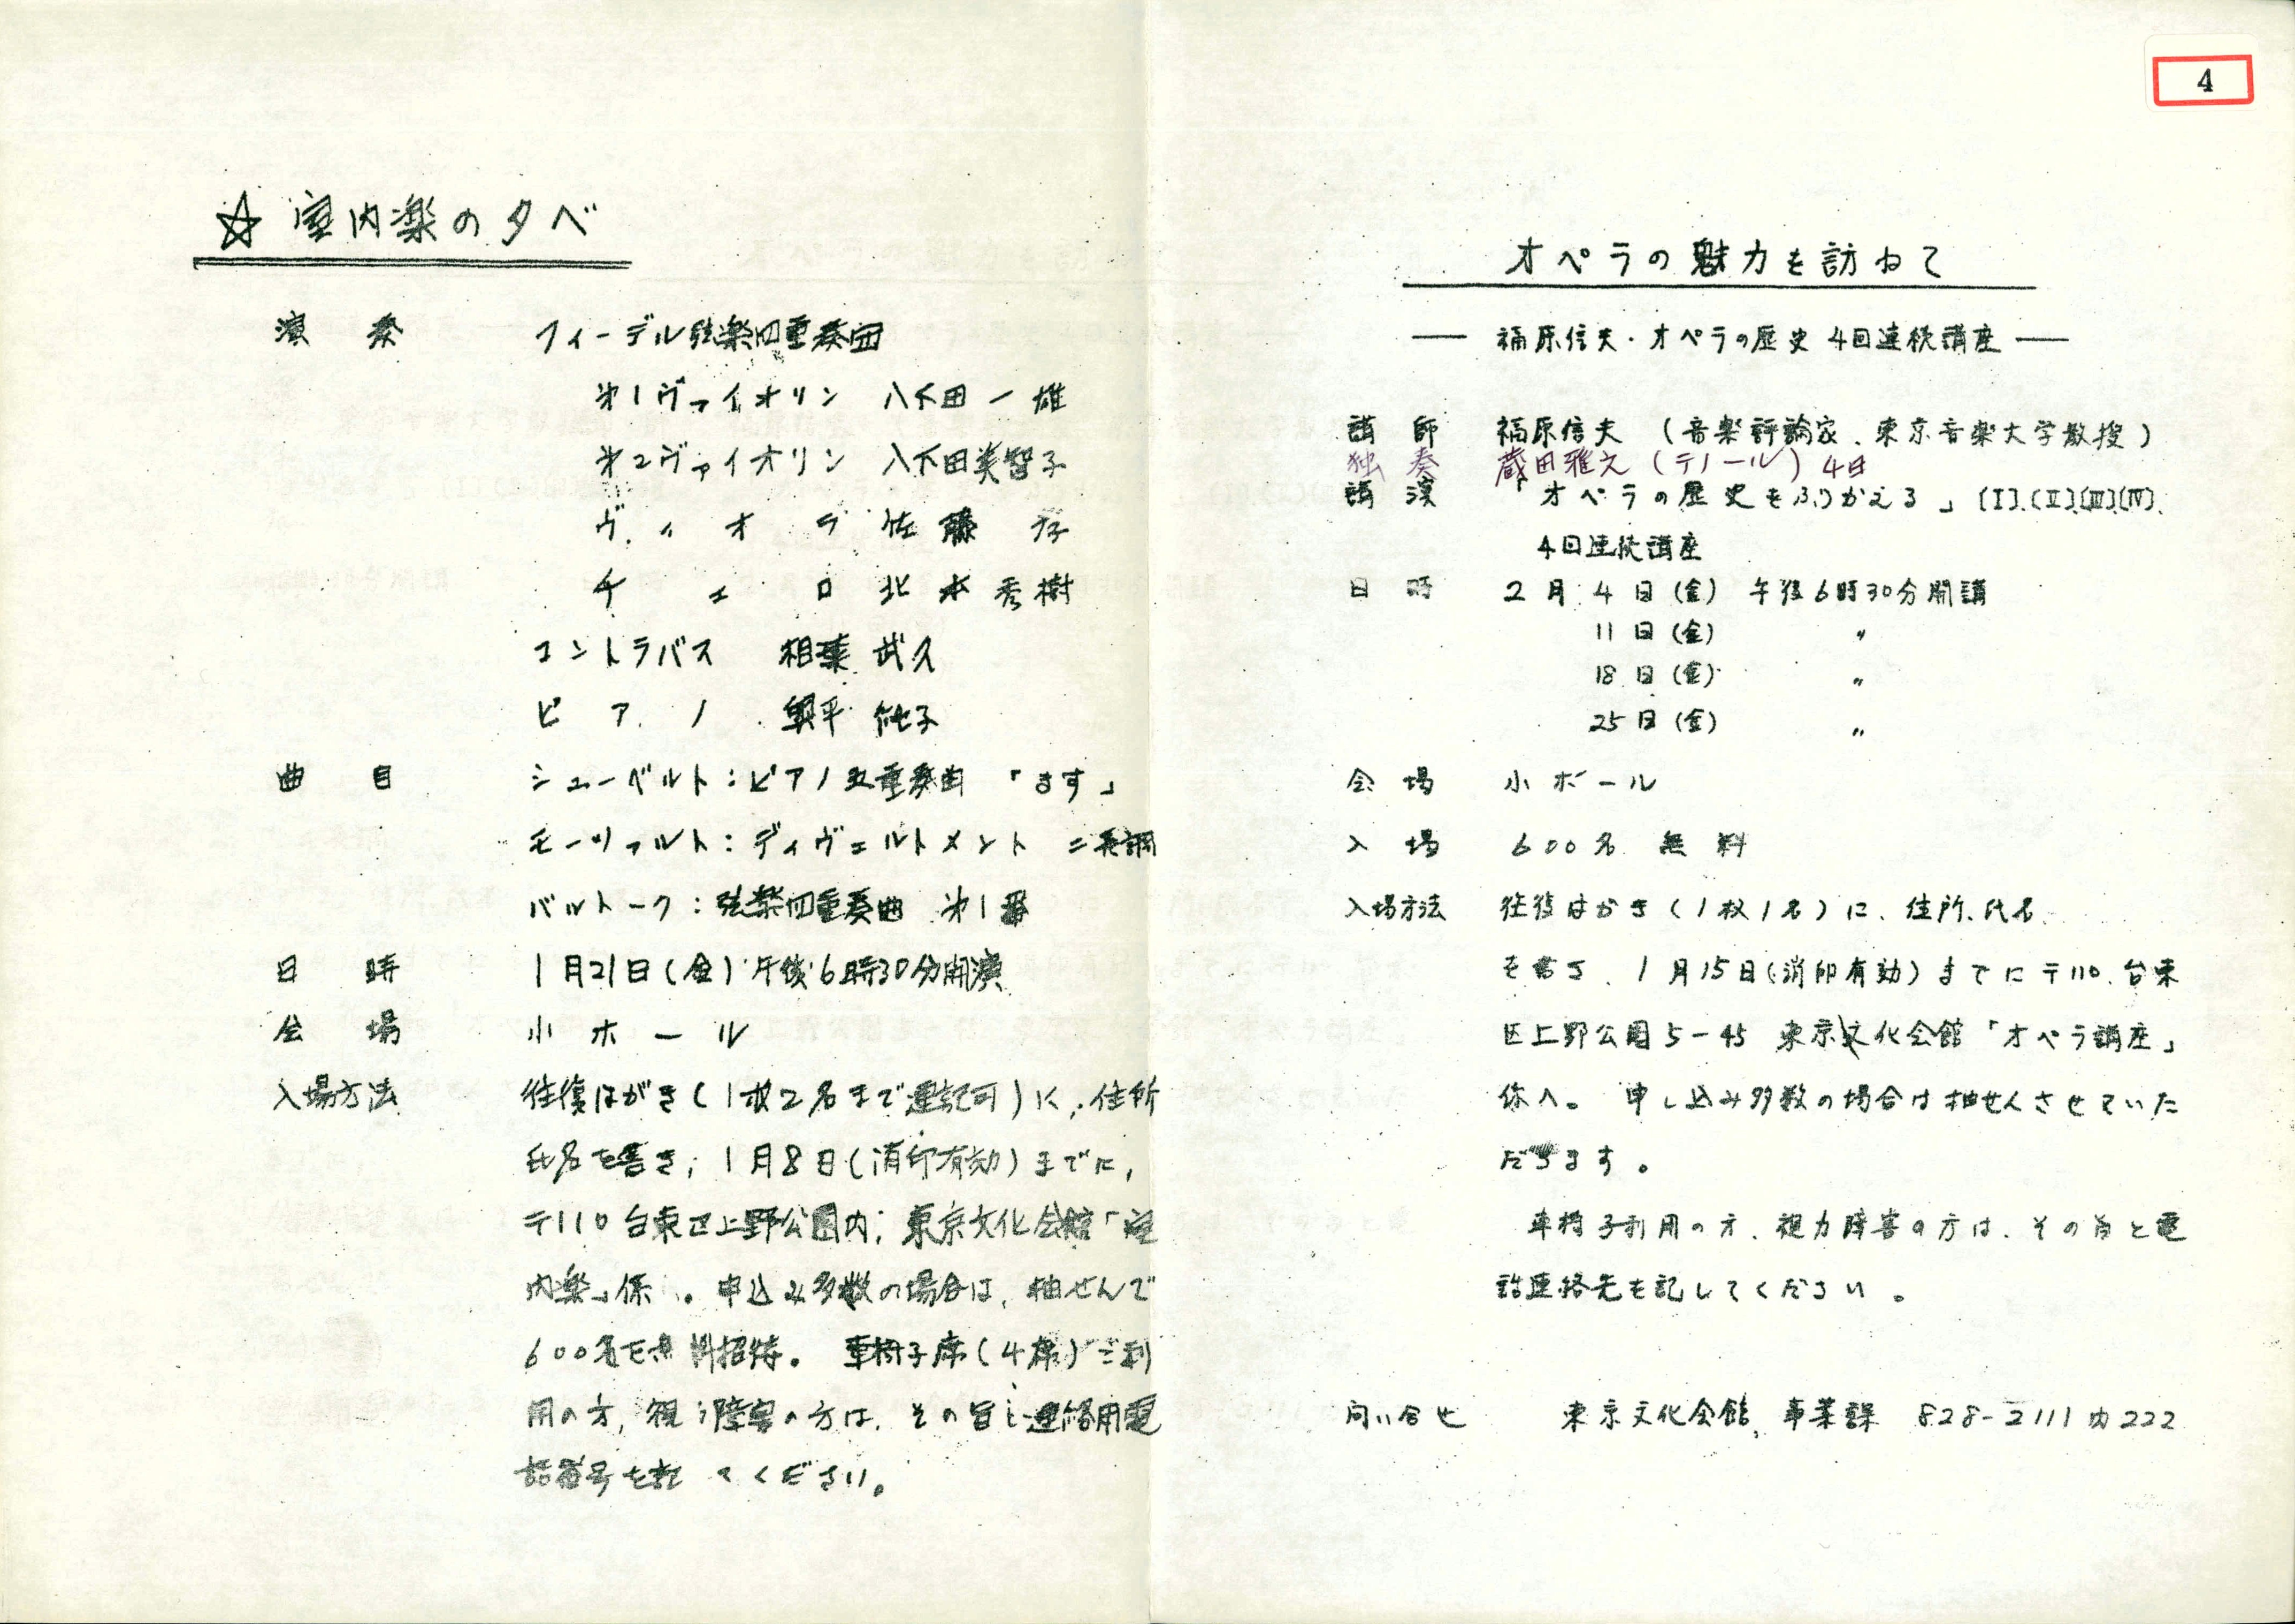 4
☆ 室内楽の夕べ
演奏 フィーデル弦楽四重奏団
第1ヴァイオリン 八下田一雄
第2ヴァイオリン 八下田美智子
ヴィオラ 佐藤
チェロ 北本秀樹
コントラバス 相葉武久
ピアノ 奥平純子
曲目 シューベルト:ピアノ五重奏曲「ます」
モーツァルト:ディヴェルトメント ニ長調
バルトーク:弦楽四重奏曲 第1番
日時 1月21日(金)午後6時30分開演
会場 小ホール
入場方法 往復はがき(1枚2名まで連記可)に、住所
氏名を書き、1月8日(消印有効)までに、
〒110 台東区上野公園内、東京文化会館「室
内楽」係 。申込み多数の場合は、抽せんで
600名を無料招待。車椅子席(4席)ご利
用の方、視力障害の方は、その旨と連絡用電
話番号を記 てください。
オペラの魅力を訪ねて
― 福原信夫・オペラの歴史 4回連続講座 ―
講師 福原信夫 (音楽評論家、東京音楽大学教授)
独奏 蔵田雅之 (テノール) 4日
講演 「オペラの歴史をふりかえる」〔I〕.〔II〕〔III〕〔IV〕.
4回連続講座
日時 2月4日(金) 午後6時30分開講
11日(金) 〃
18日(金) 〃
25日(金) 〃
会場 小ホール
入場 600名 無料
入場方法 往復はがき(1枚1名)に、住所、氏名
を書き、1月15日(消印有効)までに〒110、台東
区上野公園5-45 東京文化会館「オペラ講座」
係へ。申し込み多数の場合は抽せんさせていた
だきます。
車椅子利用の方、視力障害の方は、その旨と電
話連絡先を記してください。
問い合せ 東京文化会館、事業課 828-2111内222